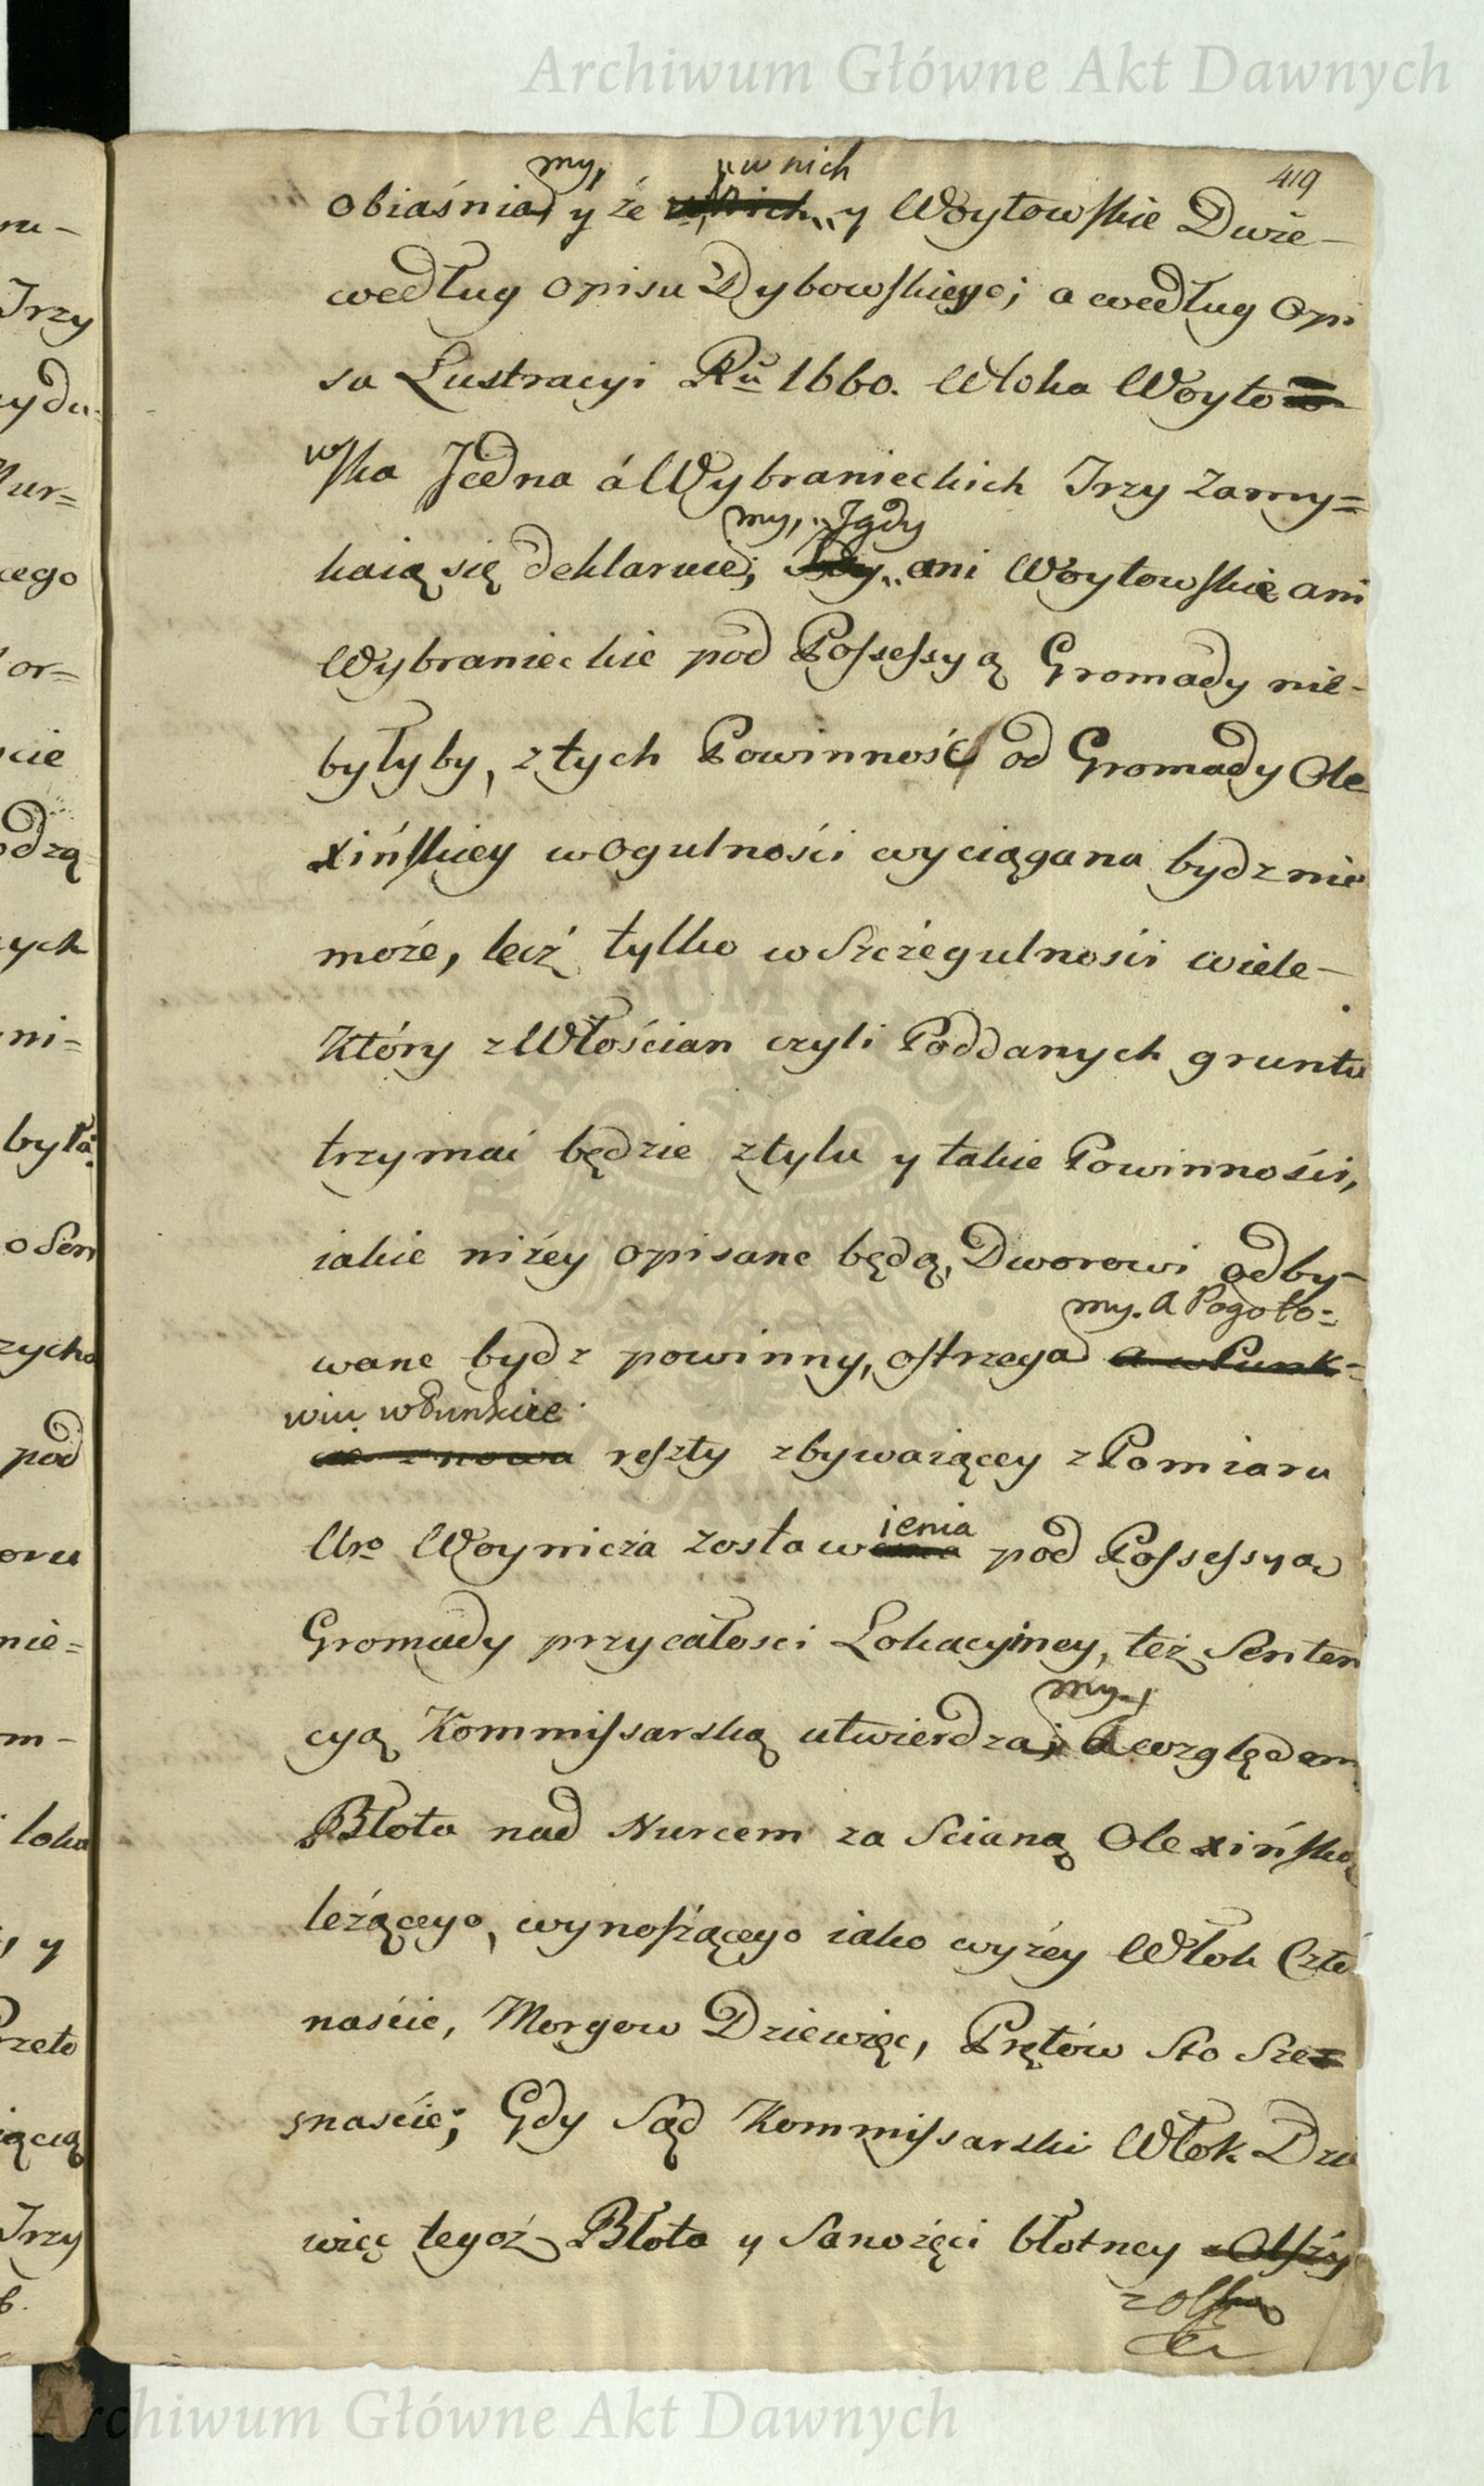 Archiwum Główne Akt Dawnych
419
my, „w nich
obiaśnia y że w nich „ y Woytowskie Dwie
według opisu Dybowskiego; a według Opi
su Lustracyi Ru 1660. Włoka Woytow
wska Jedna á Wybranieckich Trzy zamy=
my, „Jgdy
kaią się deklaruie; „ ani Woytowskie ani
Wybranieckie pod Possessyą Gromady nie-
byłyby, z tych Powinność od Gromady Ole
xińskiey w Ogulności wyciągana bydz nie
może, lecż tylko w Szczegulności wiele-
Który z Włościan czyli Poddanych gruntu
trzymać będzie z tylu y takie Powinności,
iakie niżey opisane będą, Dworowi odby-
my. a Pogoto=
wane bydz powinny, ostrzega a w Punk=
wiu w Punkcie
cie znowu reszty zbywaiącey z Pomiaru
ienia
Uro Woynicza zostaw pod Possessyą
Gromady przy całości Lokacyiney, też Senten
my,
cyą Kommissarską utwierdza; a względem
Błota nad Nurcem za Scianą Olexińską
leżącego, wynoszącego iako wyżey Włok Czter
naście, Morgow Dziewięc, Prętów Sto Szes
snaście; Gdy Sąd Kommissarski Włok Dzie
więć tegoż Błota y Sanożęci błotney z Olszy
Archiwum Główne Akt Dawnych